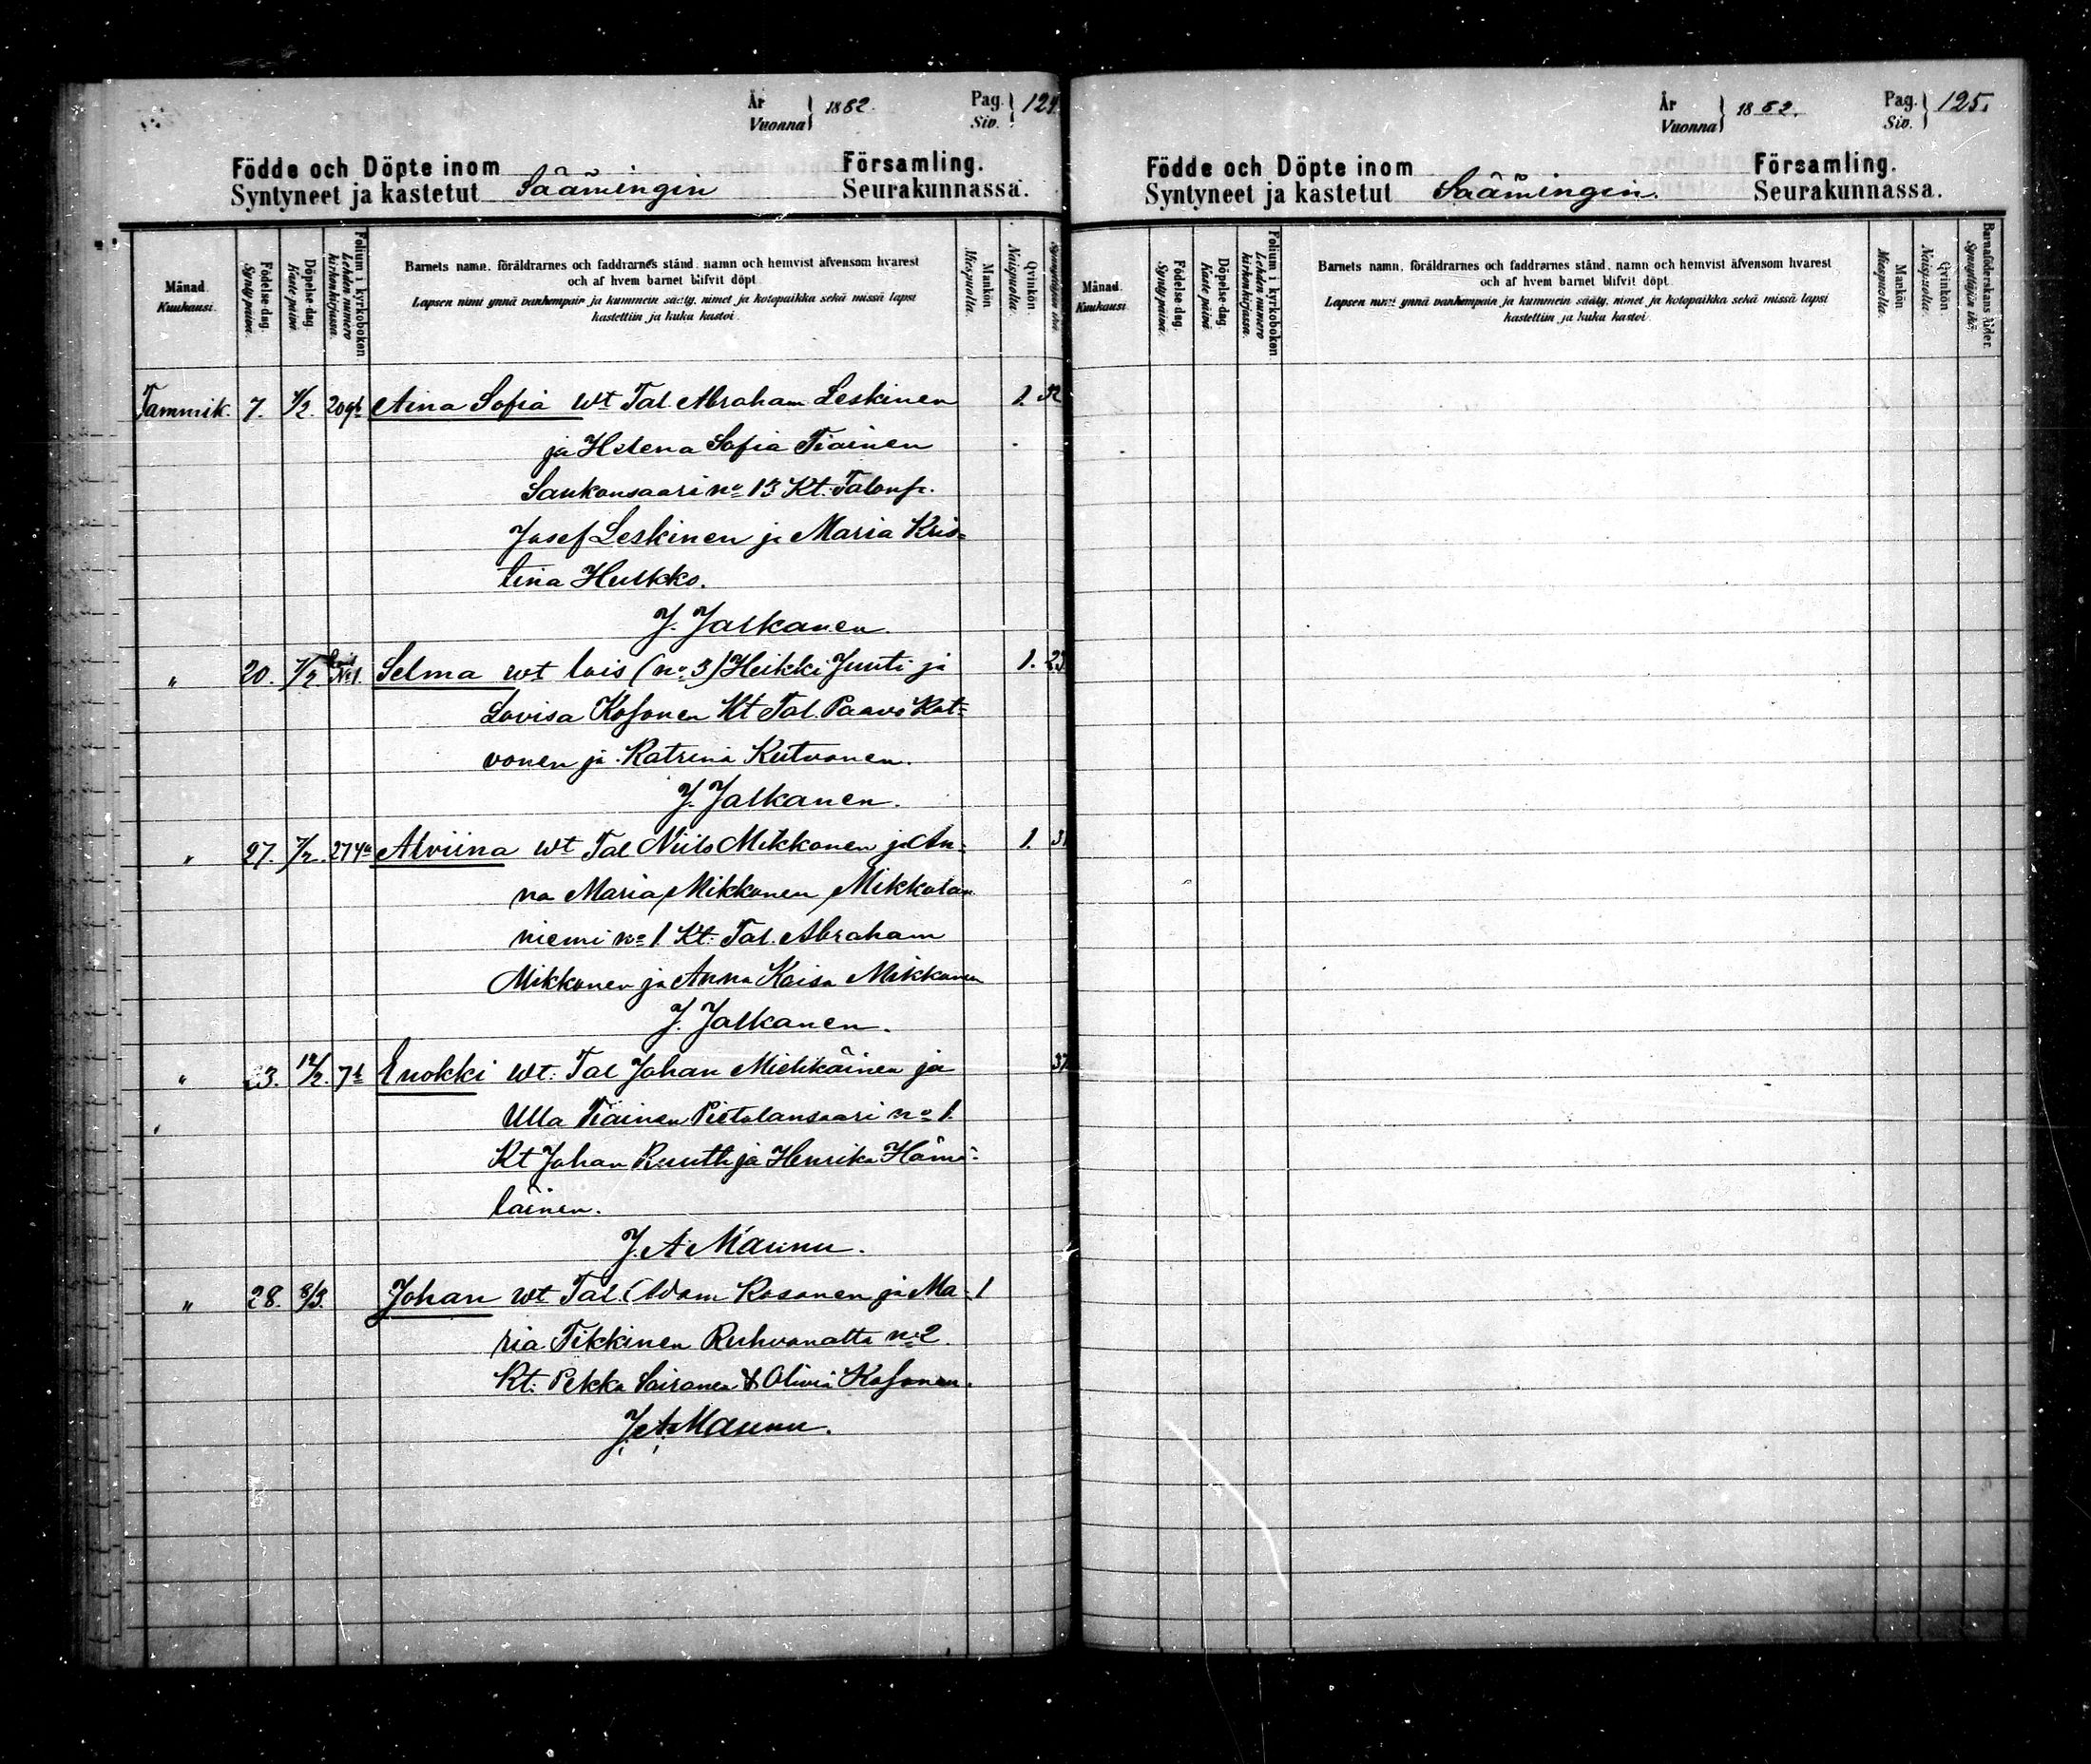 År 1882. Pag. 124
Vuonna Siv.
Födde och Döpte inom Församling.
Syntyneet ja kastetut Säämingin Seurakunnassa.
Månad. Kuukausi.
Födelse-dag. Synty-päivä.
Döpelse-dag. Kaste-päivä.
Folium i kyrkoboken Lehden numero kirkonkirjassa.
Barnets namn, föräldrarnes och faddrarnes stånd, namn och hemvist äfvensom hvarest
och af hvem barnet blifvit döpt.
Lapsen nimi ynnä vanhempain ja kummein sääty, nimet ja kotopaikka sekä missä lapsi
kastettiin ja kuka kastoi.
Mankön Miespuolia.
Qvinkön. Naispuolia.
Tammik. 7. 209b Aina Sofia wt Tal. Abraham Leskinen 1. 32
ja Helena Sofia Tiainen
Saukonsaari no 13 Kt. Talonp.
Josef Leskinen ja Maria Kris=
tina Hulkko.
J. Jalkanen.
" 20. 7/2. No 1. Selma wt lois (no 3) Heikki Juuti ja 1. 23
Lovisa Kosonen Kt Tal. Paavo Kut=
vonen ja Katrina Kutvonen.
J. Jalkanen.
" 27. 7/2. 274a Alviina wt Tal Niilo Mikkonen ja An= 1. 31
na Maria Mikkonen Mikkolan
niemi no 1 Kt. Tal. Abraham
Mikkonen ja Anna Kaisa Mikkonen
J. Jalkanen.
" 23. 12/2. 7b Enokki wt. Tal Johan Miehkäinen ja 37
Ulla Tiainen Pietolansaari no 1.
Kt Johan Ruutti ja Henrika Hämä=
läinen.
J. A. Maunu.
" 28. 8/3. Johan wt Tal. Adam Kosonen ja Ma= 1
ria Tikkinen Ruhvanatta no 2
Kt: Pekka Sairanen & Olivia Kosonen.
J. A. Maunu.
År 1882. Pag. 125.
Vuonna Siv.
Födde och Döpte inom Församling.
Syntyneet ja kastetut Säämingin. Seurakunnassa.
Månad. Kuukausi
Födelse-dag. Synty-päivä.
Döpelse-dag Kaste-päivä
Folium i kyrkoboken Lehden numero kirkonkirjassa.
Barnets namn, föräldrarnes och faddrarnes stånd, namn och hemvist äfvensom hvarest
och af hvem barnet blifvit döpt.
Lapsen nimi ynnä vanhempain ja kummein sääty, nimet ja kotopaikka sekä missä lapsi
kastettiin ja kuka kastoi.
Mankön Miespuolia.
Qvinkön Naispuolia.
Barnaföderskans ålder. Synnyttäjän ikä.